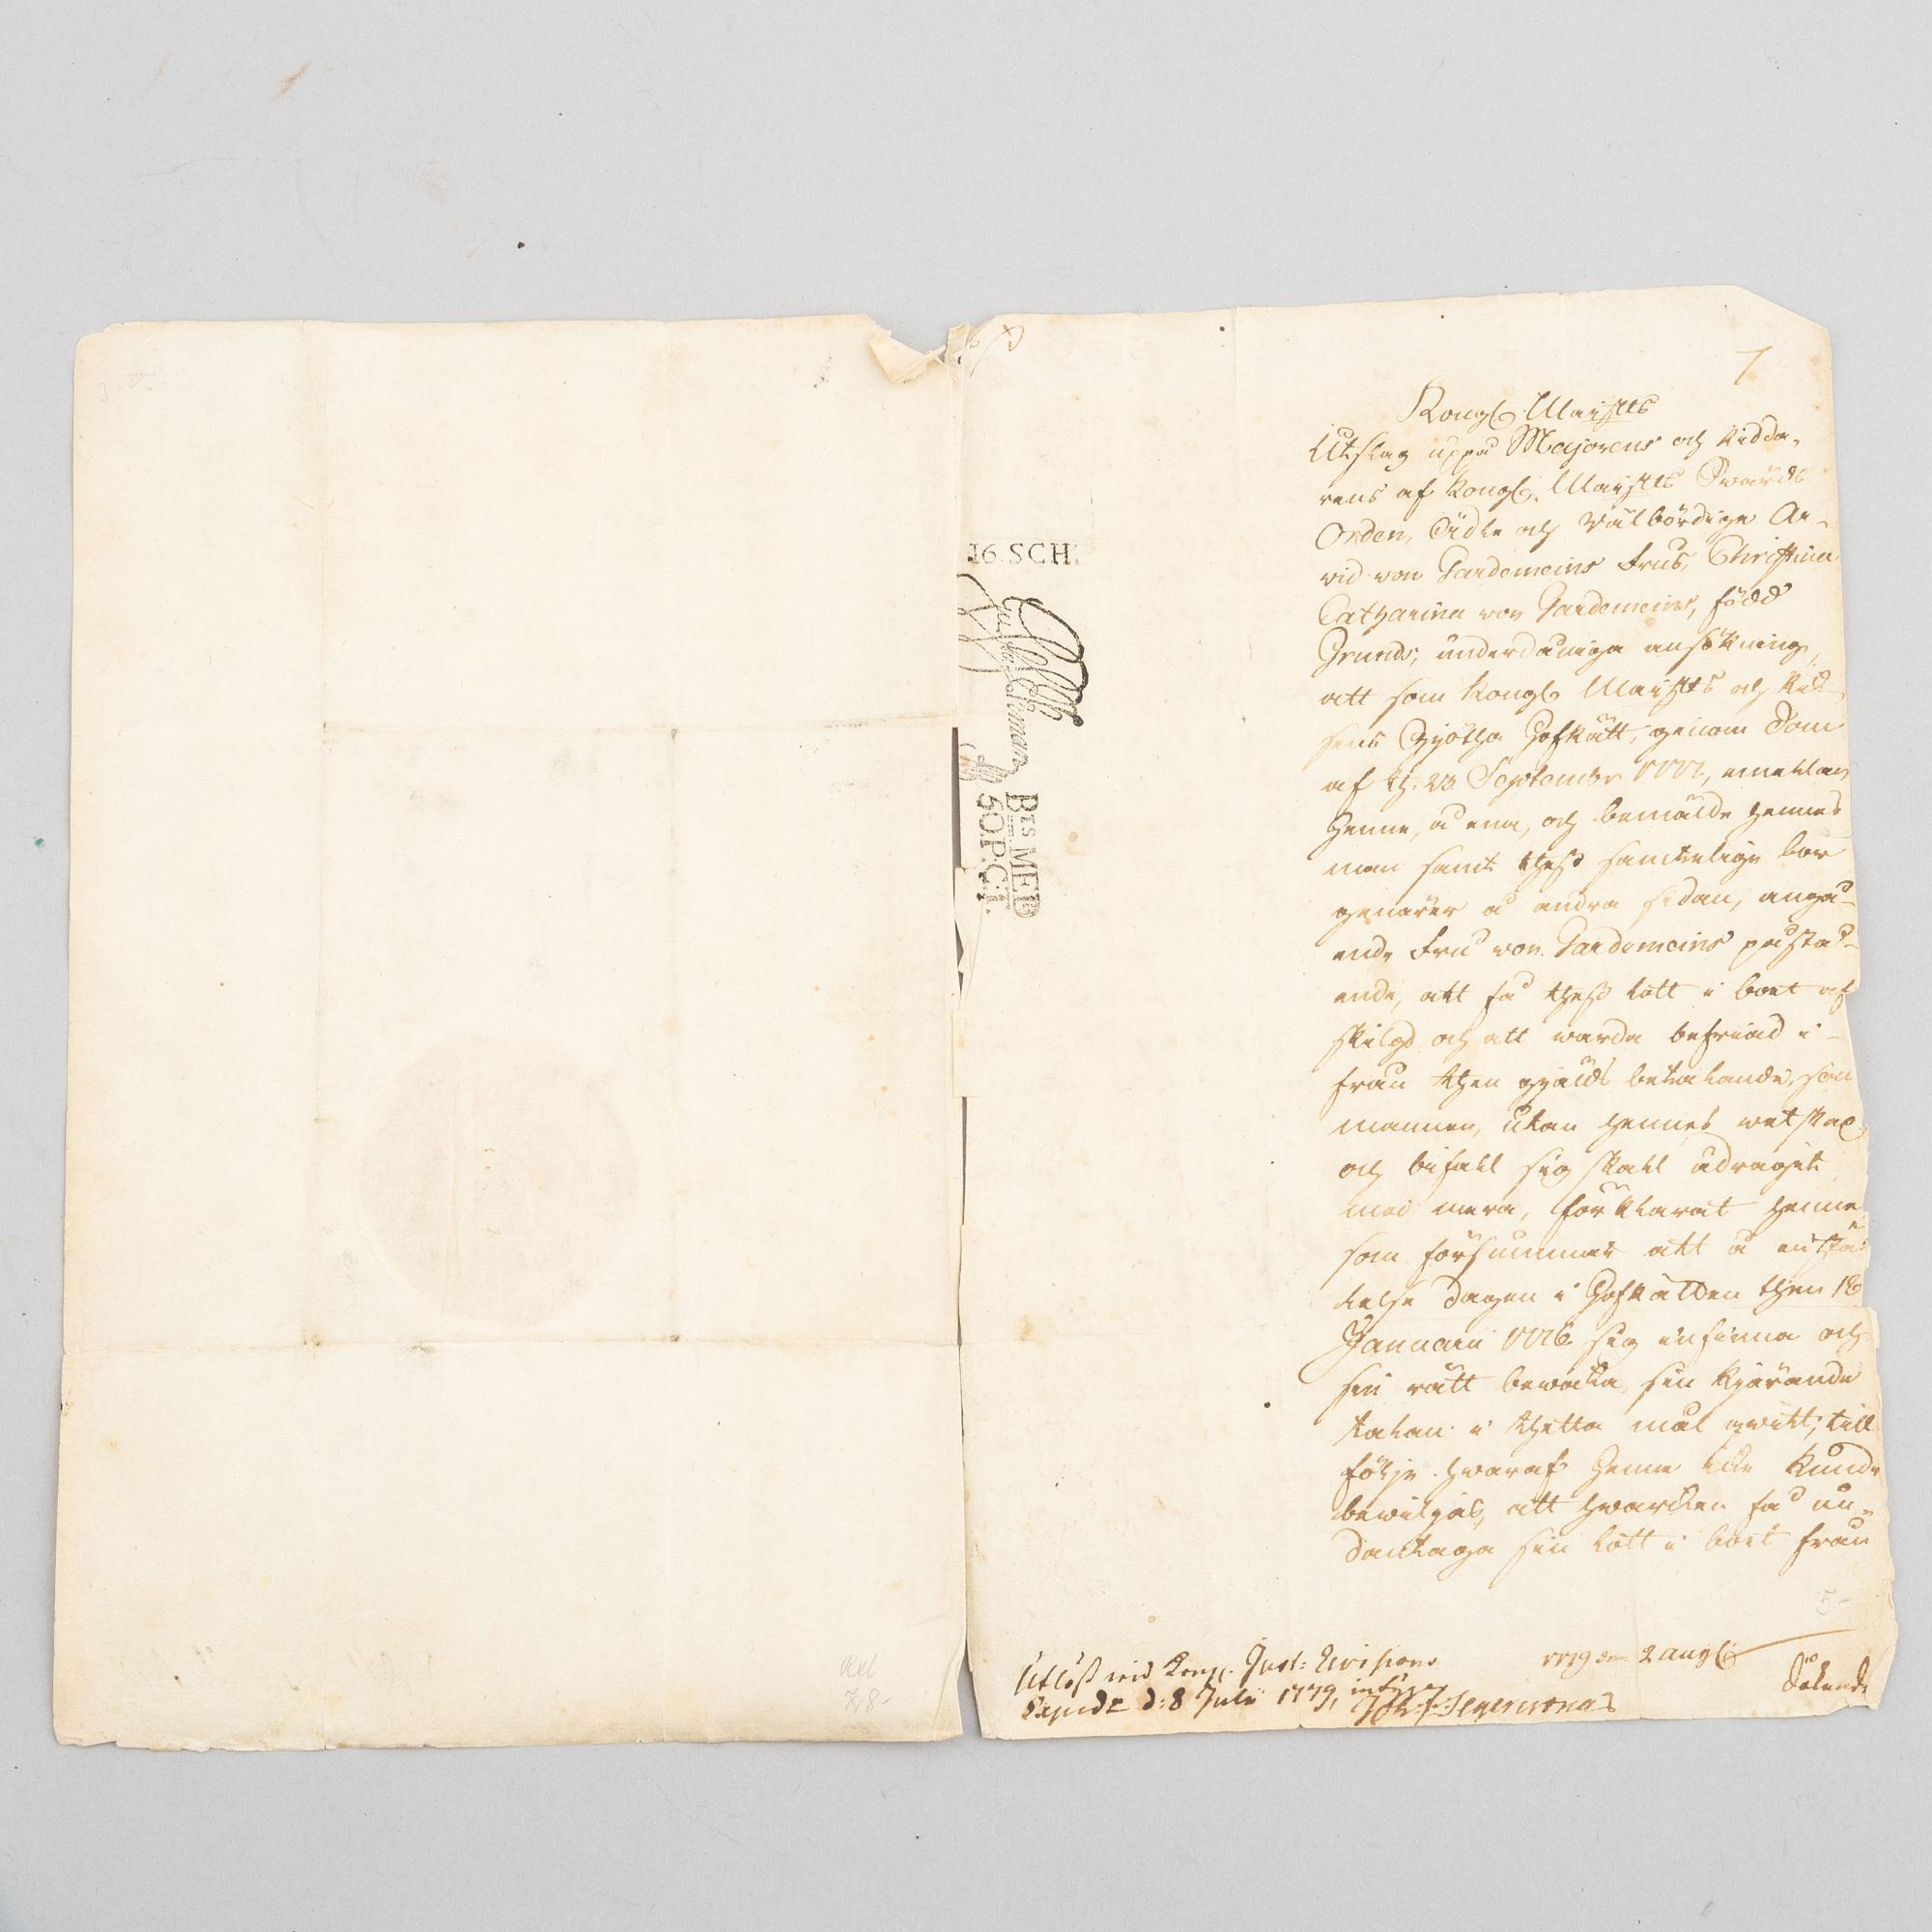 7
Kongl. Maijtts
Utslag uppå Majorens och Ridda-
rens af Kongl. Maijtts Swärds
Orden, Ädle och Välbördige Ar-
vid von Gardemeins Frus, Christina
Catharina von Gardemeins, född
Grunds, underdåniga ansökning,
att som Kongl. Maijtts och Rik-
sens Gjötha Hofrätt, genom Dom
af th. 23 Septembr 1777, emellan
henne, å ena, och bemälde hennes
man samt thess samtelige bor-
genärer å andra sidan, angå-
ende Fru von Gardemeins påstå-
ende, att få thess lott i boet af-
skilgd och att warda befriad i-
från then gjälds betalande, som
mannen, utan hennes wetskap
och bifall sig skall ådragit
med mera, förklarat henne
som försummat att å instäl-
lelse dagen i Hofrätten then 18
Januarii 1776 sig infinna och
sin rätt bewaka, sin kjärande
talan i thetta mål qwitt, till
följe hwaraf henne icke kunde
bewiljas, att hwarken få un-
dantaga sin lott i boet från
16. SCH.
BES. MED
50. P:CT.
Utlöst wid Kongl. Just: Revisions
Exped: d: 8 Julii 1779,
1779 den 2 aug
5-
Rel
28-